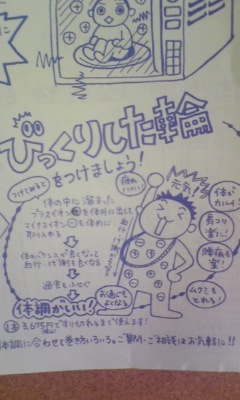 びっくりした輪
をつけましょう!
つけてみると
体の中に溜まった
プラスイオン⊕を体外に出し
マイナスイオン⊖を体内に
取り入れる
体のバランスが良くなって
血行・代謝も良くなる
過食もふせぐ
体調がいい!
お通じも
よくなる
元気!
体が
カルイ!
肩コリ
楽に!
腰痛も
楽!
ムクミも
とれる!
1本 3,675円ですり切れるまで使えます!
体調に合わせて巻き方いろいろ。ご質問・ご相談はお気軽に!!